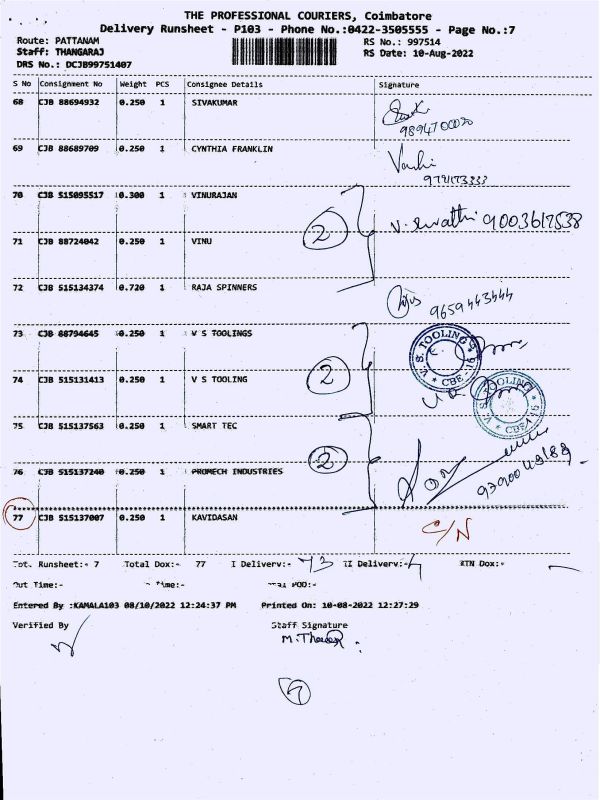 THE PROFESSIONAL COURIERS, Coimbatore
Delivery Runsheet - P103 - Phone No.:0422-3505555 - Page No.:7
Route: PATTANAM
RS No.: 997514
Staff: THANGARAJ
RS Date: 10-Aug-2022
DRS No.: DCJB99751407
S No Consignment No Weight PCS Consignee Details Signature
68 CJB 88694932 0.250 1 SIVAKUMAR
9894700020
69 CJB 88689709 0.250 1 CYNTHIA FRANKLIN
70 CJB 515095517 0.300 1 VINURAJAN
2 V. Swathi 9003617538
71 CJB 88724042 0.250 1 VINU
72 CJB 515134374 0.720 1 RAJA SPINNERS
9659443444
73 CJB 88794645 0.250 1 V S TOOLINGS
V. S. TOOLING CBE-16
74 CJB 515131413 0.250 1 V S TOOLING
2
V. S. TOOLING CBE-16
75 CJB 515137563 0.250 1 SMART TEC
2
76 CJB 515137240 0.250 1 PROMECH INDUSTRIES
77 CJB 515137007 0.250 1 KAVIDASAN
C/N
Tot. Runsheet:- 7 Total Dox:- 77 I Delivery:- 73 II Delivery:- 4 RTN Dox:-
Out Time:- Time:- POD:-
Entered By :KAMALA103 08/10/2022 12:24:37 PM Printed On: 10-08-2022 12:27:29
Verified By Staff Signature